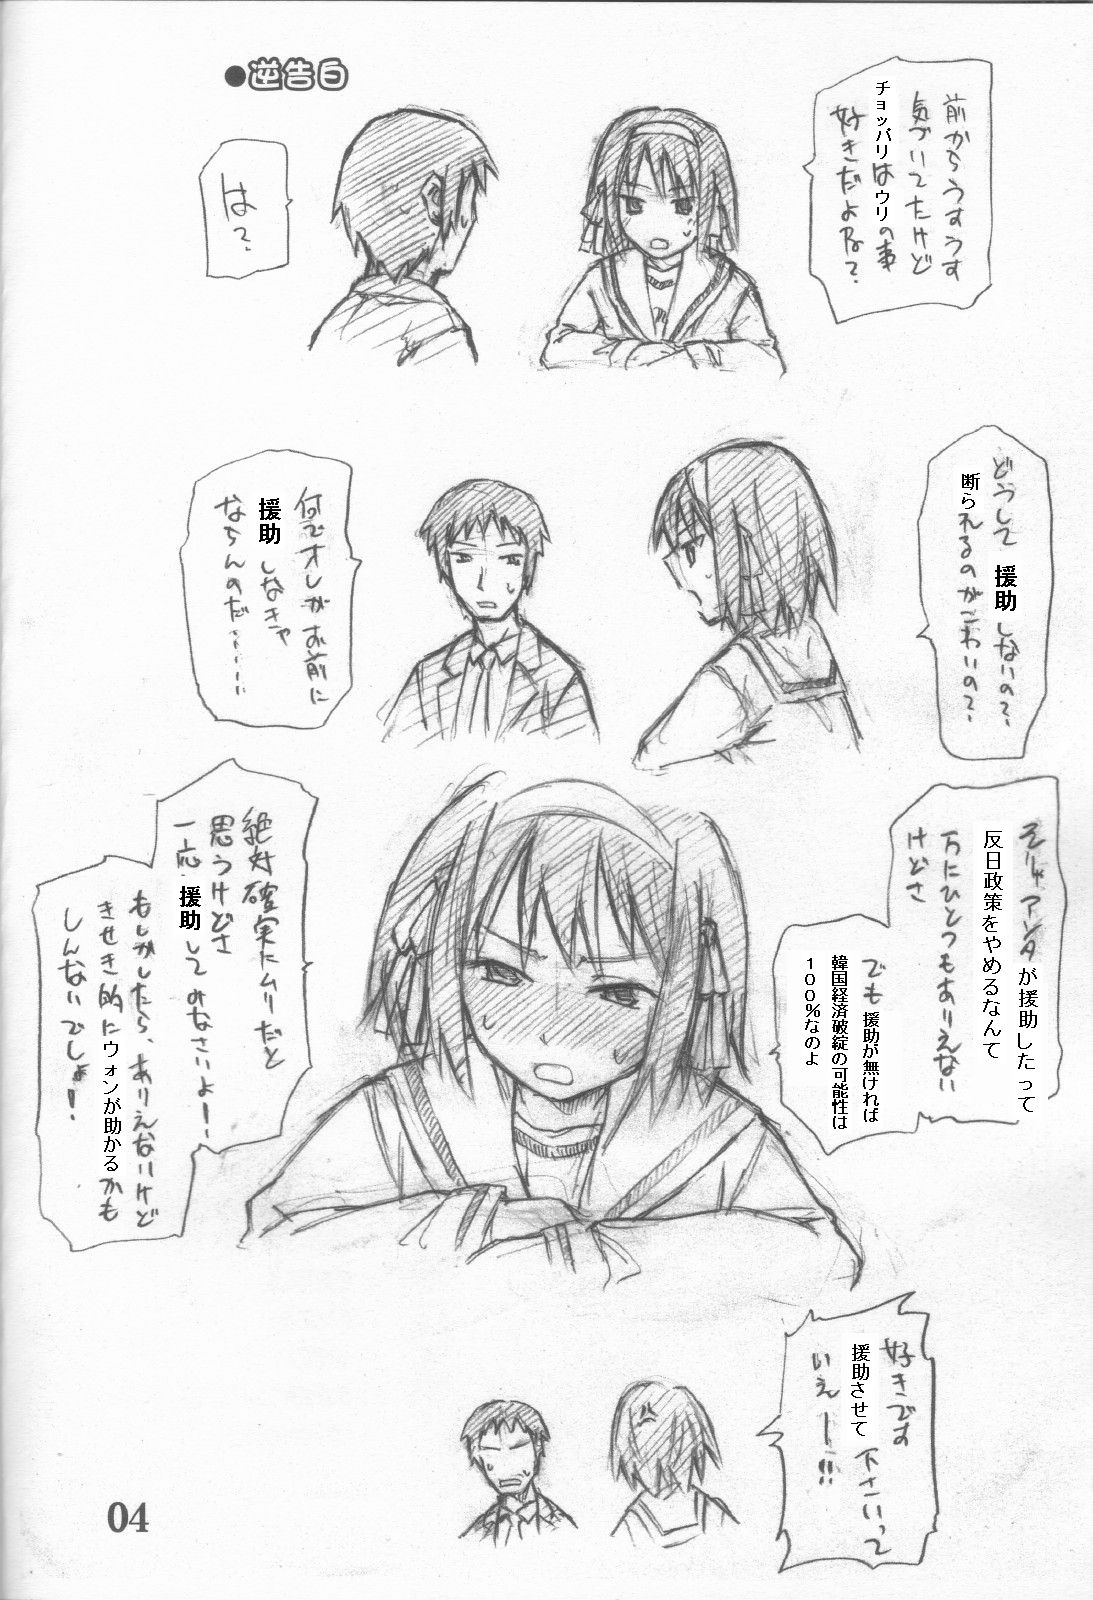 ●逆告白
前からうすうす
気づいてたけど
チョッパリはウリの事
好きだよね？
は？
どうして援助しないの？
断られるのがこわいの？
何でオレがお前に
援助しなきゃ
ならんのだ……
そりゃアンタが援助したって
反日政策をやめるなんて
万にひとつもありえない
けどさ
でも援助が無ければ
韓国経済破綻の可能性は
100％なのよ
絶対確実にムリだと
思うけどさ
一応援助してみなさいよー！
もしかしたら、ありえないけど
きせき的にウォンが助かるかも
しんないでしょ！
好きです
援助させて下さいって
いえー！！
04